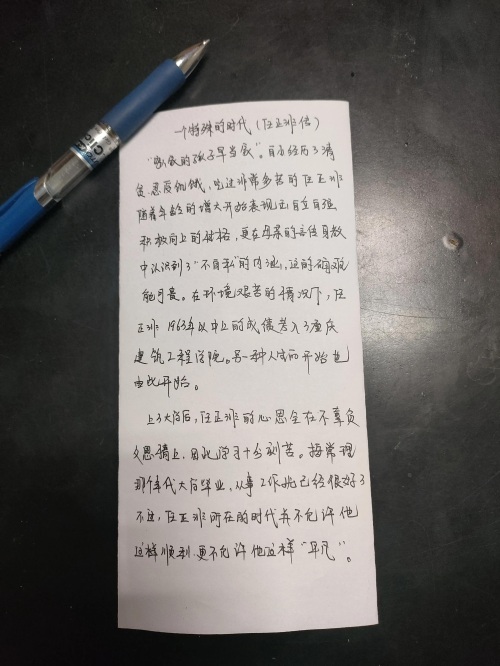 一个特殊的时代（任正非传）
"穷人的孩子早当家"。自幼经历了清
贫、忍受饥饿、吃过非常多苦的任正非
随着年龄的增大开始表现出自立自强
积极向上的性格，更在母亲的言传身教
中认识到了"不自私"的力量，这的确难
能可贵。在环境艰苦的情况下，任
正非1963年以中上的成绩考入了重庆
建筑工程学院。另一种人生的开始也
由此开始。
上了大学后，任正非的心思全在不辜负
父恩情上，因此学习十分刻苦。按常理
那个年代大学毕业，从事工作就已经很好了
不过，任正非所在的时代并不允许他
这样顺利，更不允许他这样"平凡"。